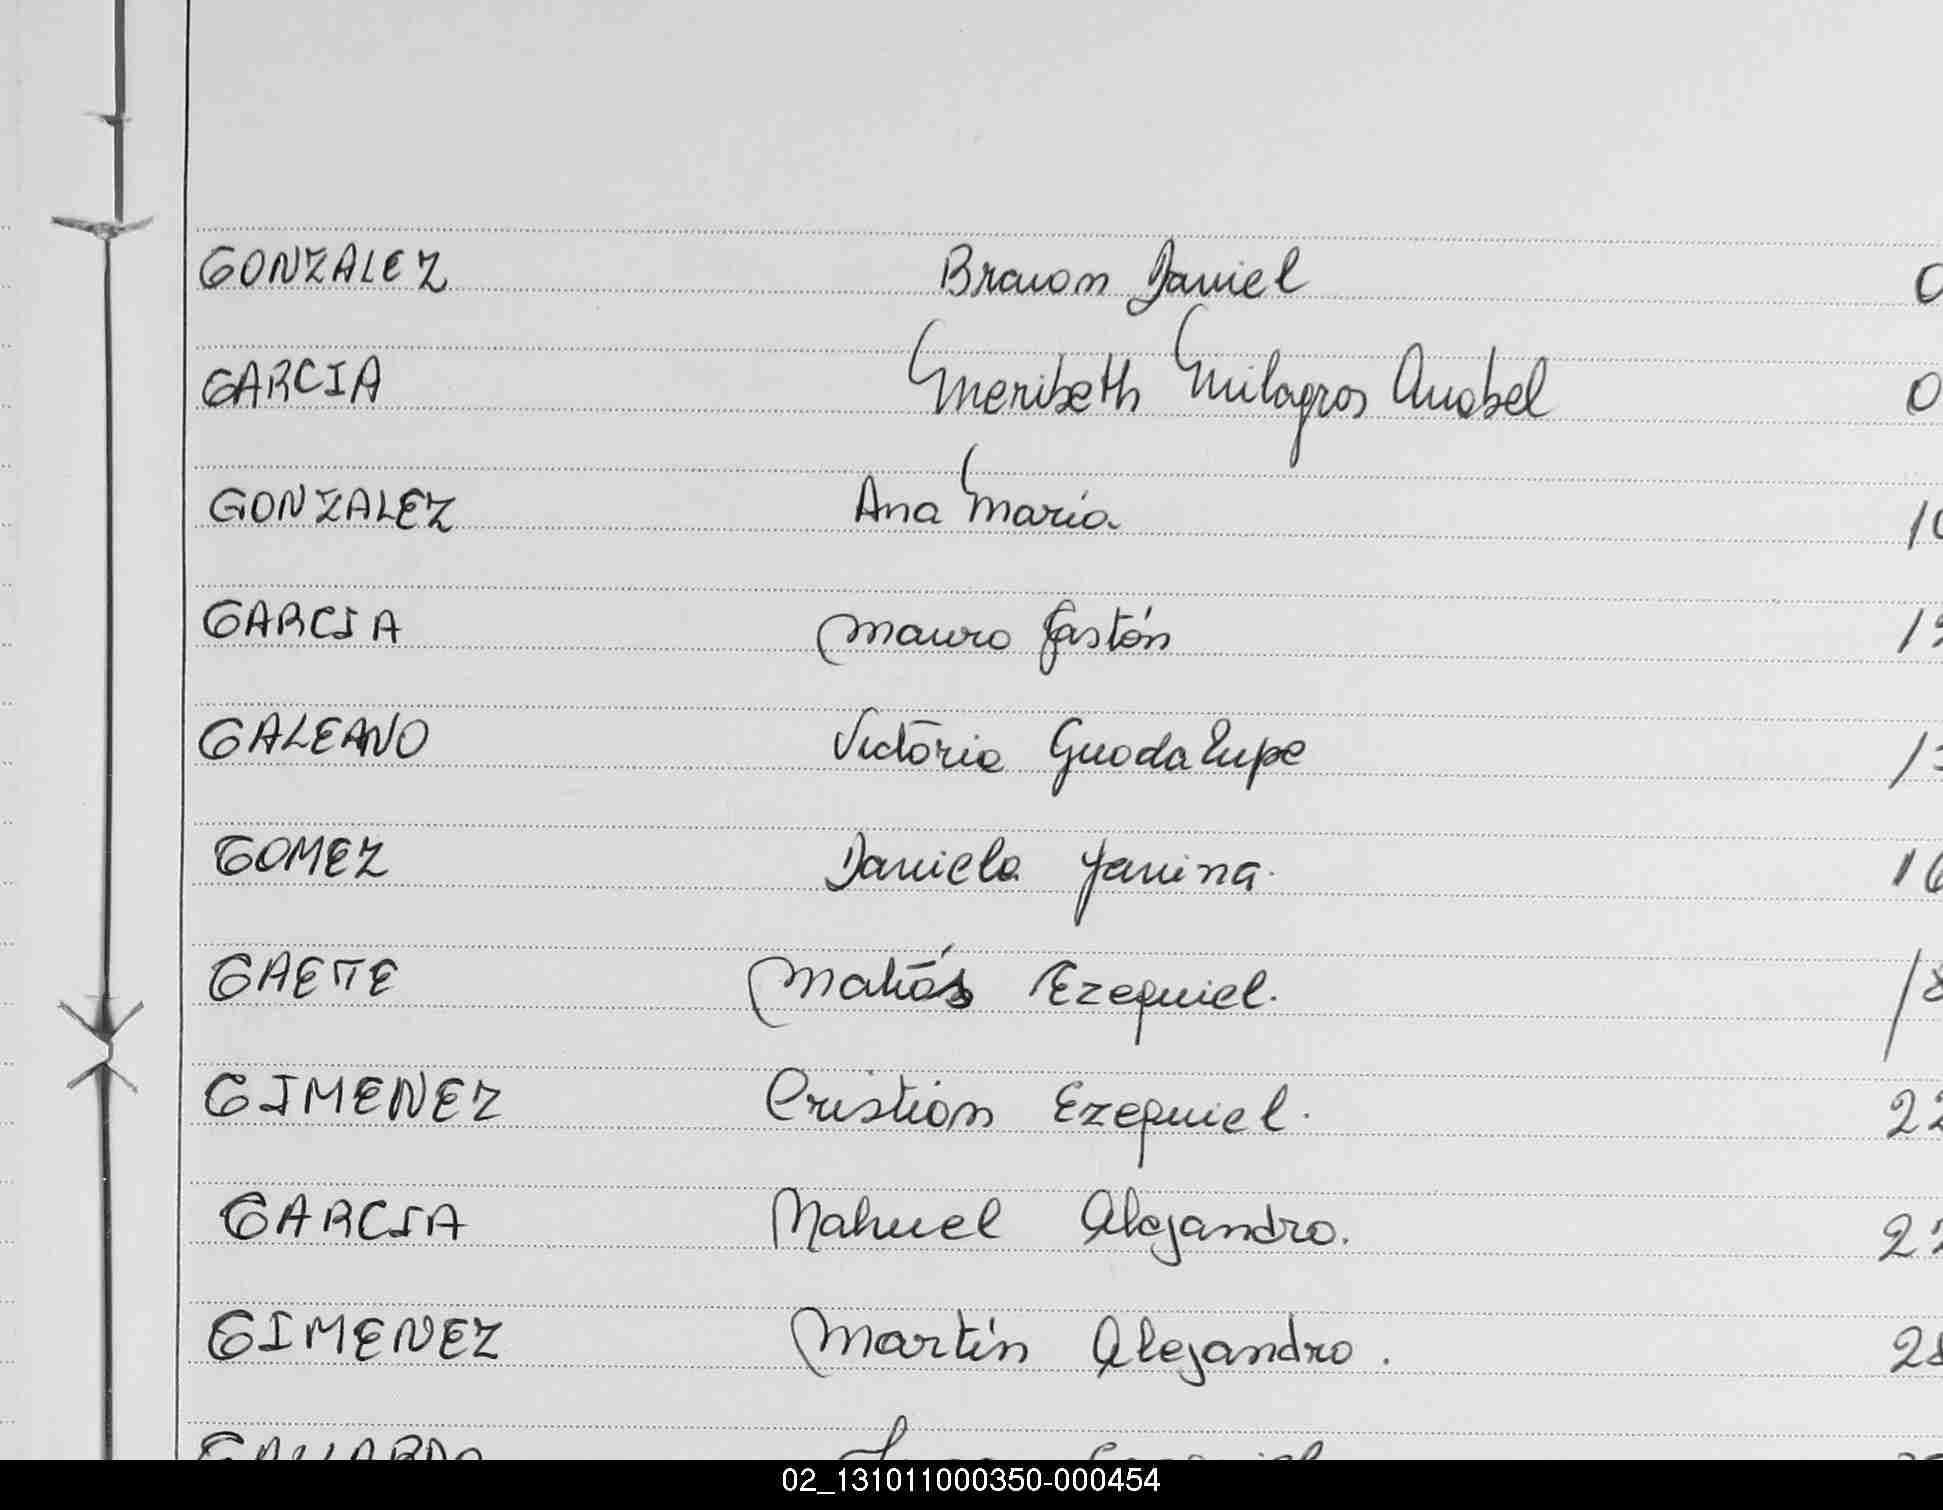 GONZALEZ Braion Daniel 0
GARCIA Meribeth Milagros Anabel 0
GONZALEZ Ana Maria 10
GARCIA Mauro Gastón
GALEANO Victoria Guadalupe
GOMEZ Daniela Yanina. 16
GAETE Matías Ezequiel. 18
GIMENEZ Cristian Ezequiel. 22
GARCIA Nahuel Alejandro.
GIMENEZ Martín Alejandro. 28
GALLARDO
02_131011000350-000454